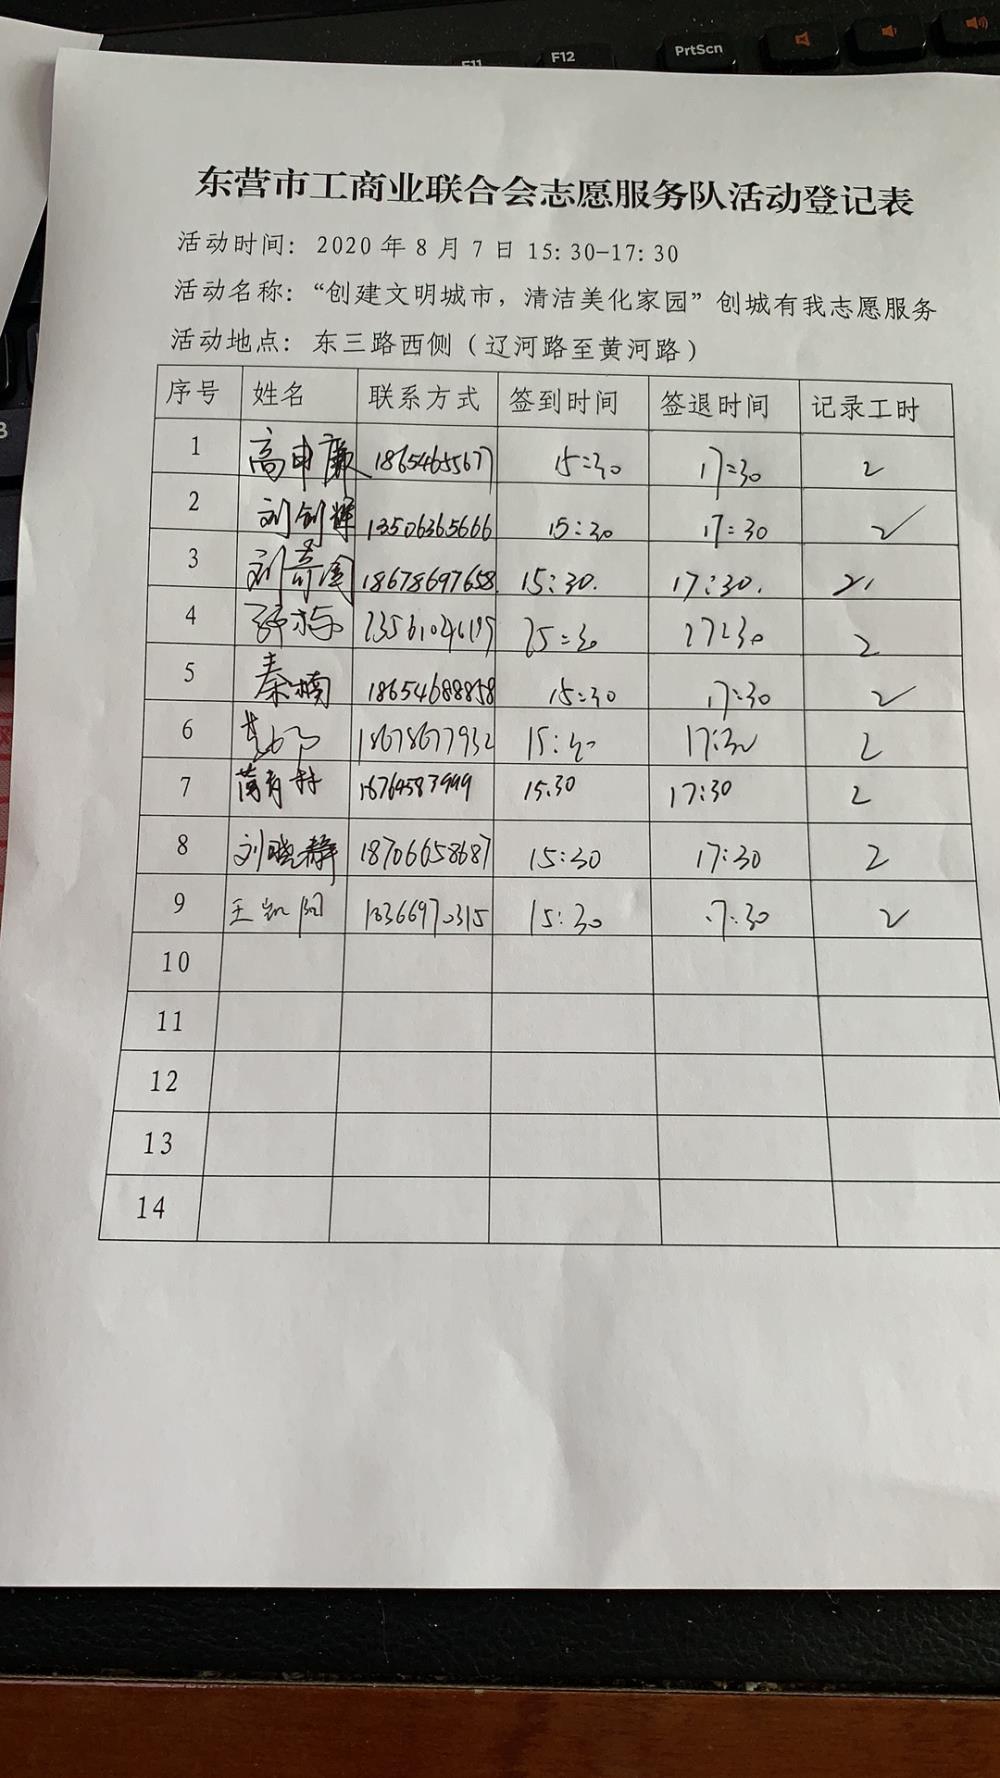 F11 F12 PrtScn
东营市工商业联合会志愿服务队活动登记表
活动时间: 2020 年 8 月 7 日 15:30-17:30
活动名称:“创建文明城市，清洁美化家园”创城有我志愿服务
活动地点: 东三路西侧（辽河路至黄河路）
序号 姓名 联系方式 签到时间 签退时间 记录工时
1 高申 18654655677 15:30 17:30 2
2 刘剑辉 13506365666 15:30 17:30 2
3 刘 18678697658 15:30. 17:30. 2
4 15:30 17:30 2
5 秦楠 18654688858 15:30 17:30 2
6 18678677932 15:30 17:30 2
7 15:30 17:30 2
8 刘晓静 18706658687 15:30 17:30 2
9 王凯 15:30 17:30 2
10
11
12
13
14